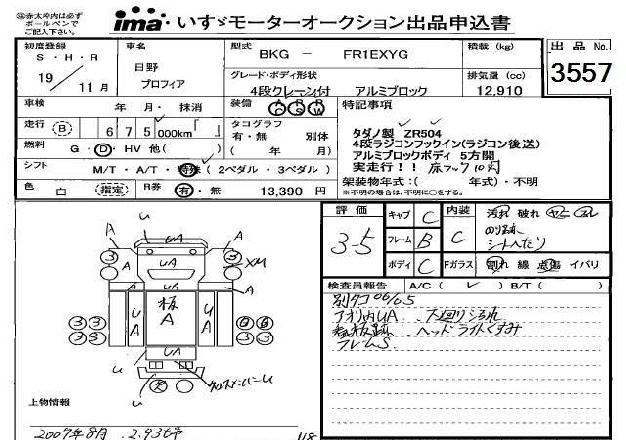 ※赤太枠内は必ず
ボールペンで
ご記入下さい。
ima いすゞモーターオークション出品申込書
出品 No.
3557
初度登録
S・H・R
19 11月
車名
日野
プロフィア
型式
BKG － FR1EXYG
積載 (kg)
グレード・ボディ形状
4段クレーン付 アルミブロック
排気量 (cc)
12,910
車検 年 月・ 抹消
装備 AC PS PW
特記事項
走行 B 6 7 5 000km
タコグラフ
有・無 別体
( 年 月)
タダノ製 ZR504
4段ラジコンフックイン(ラジコン後送)
アルミブロックボディ 5方開
実走行！！ 床フック10対
架装物年式：( 年式)・不明
※不明の場合は、不明に○をする。
燃料 G・D・HV 他( )
シフト M/T・A/T・特殊 (2ペダル・3ペダル)
色 白 (指定)
R券 有・無 13,390 円
評価
3.5
キャブ C
フレーム B
ボディ C
内装 C
汚れ 破れ ヤニ
シートへたり
Fガラス 割れ 線 点傷 イバリ
検査員報告 A/C( ) B/T( )
アオリ内UA
ヘッドライトくすみ
フレームS
U
A A
3 UA 3 XM
A A
U A 板 A U A
3 3
U UA U
クロスメンバーU
U
上物情報
2007年8月 2.93t
118